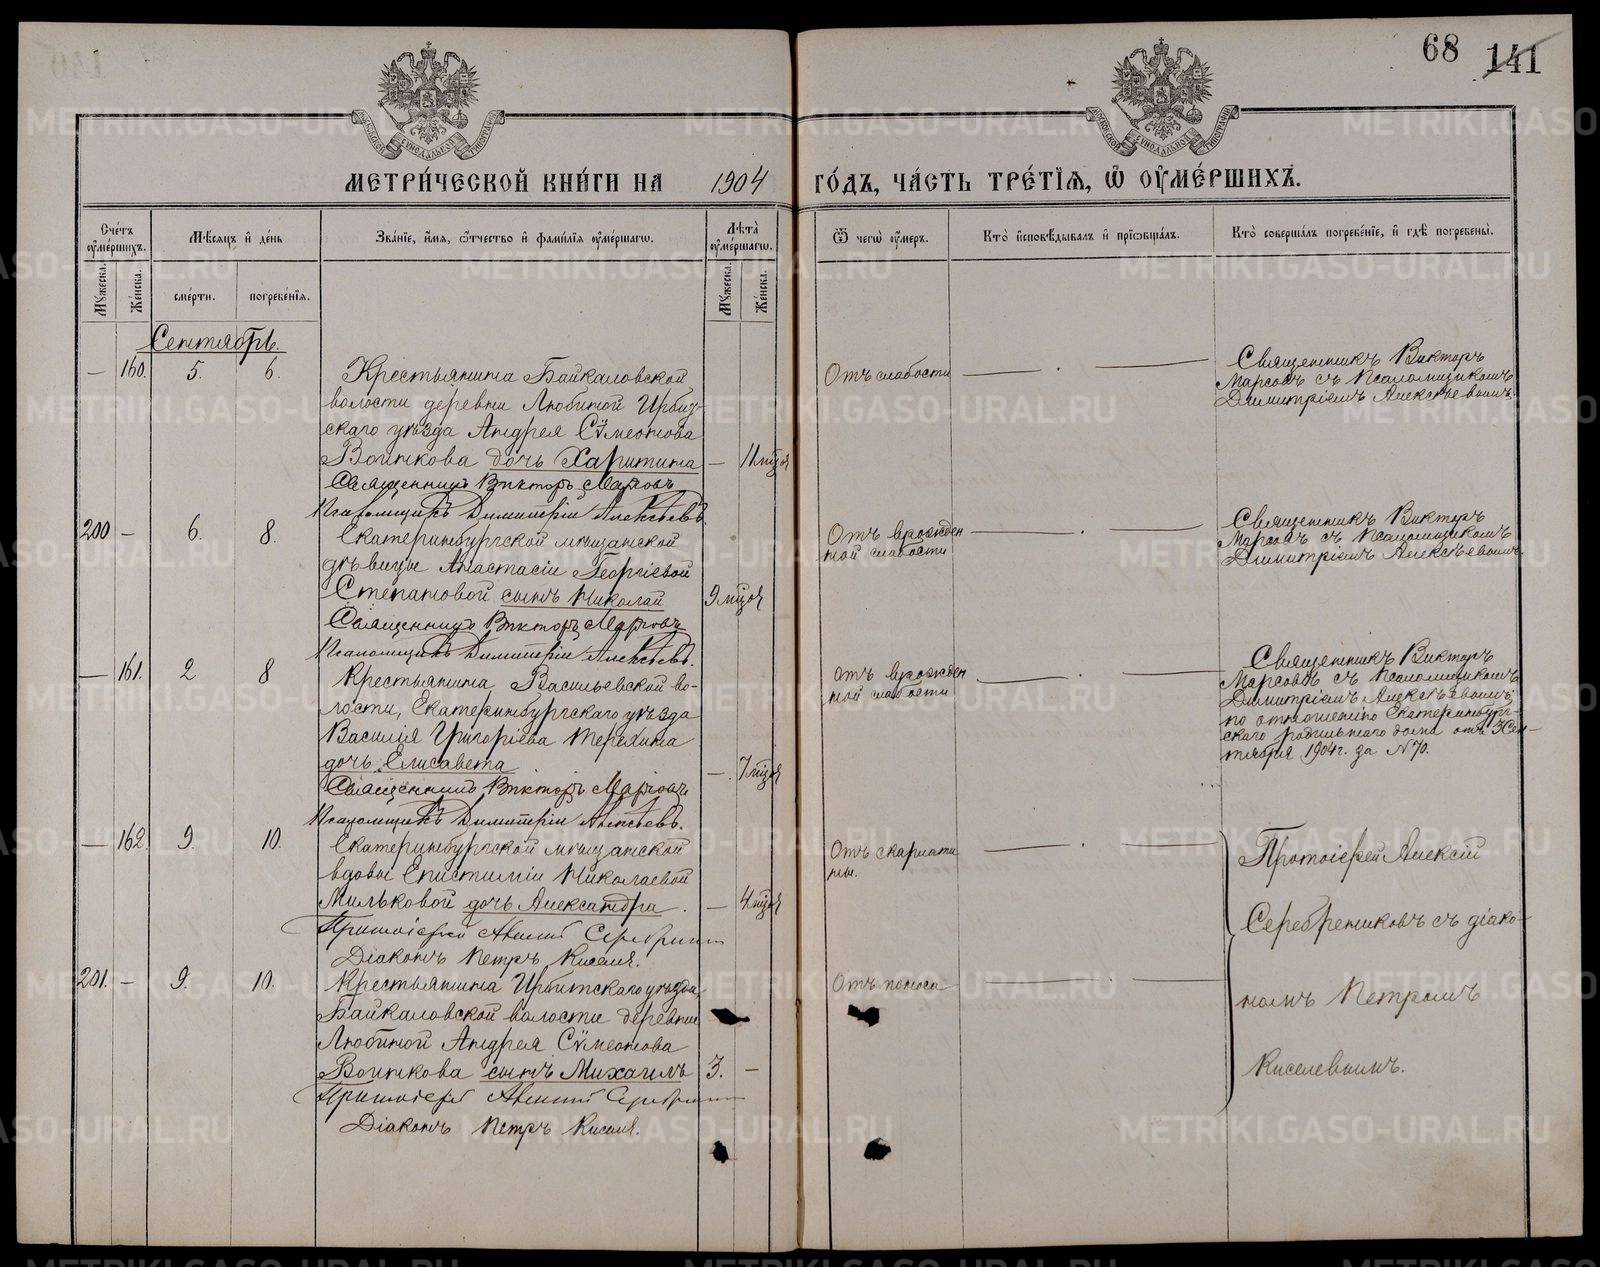 68 141
МЕТРИ́ЧЕСКОЙ КНИ́ГИ НА 1904 ГО́ДЪ, ЧА́СТЬ ТРЕ́ТІѦ, Ѿ ОУ҆МЕ́РШИХЪ.
Сче́тъ оу҆ме́ршихъ.
Мѣ́сяцъ и҆ де́нь
Зва́нїе, и҆́мѧ, ѻ҆́тчество и҆ фами́лїѧ оу҆ме́ршагѡ.
Лѣ́та оу҆ме́ршагѡ.
Ѿ чегѡ̀ оу҆́меръ.
Кто̀ и҆сповѣ́дывалъ и҆ прїѡбща́лъ.
Кто̀ соверша́лъ погребе́нїе, и҆ гдѣ̀ погребены̀.
Мꙋ́жеска.
Же́нска.
сме́рти.
погребе́нїѧ.
Мꙋ́жеска.
Же́нска.
Сентябрь.
— 160. 5. 6.
Крестьянина Байкаловской
волости деревни Любиной Ирбит-
скаго уѣзда Андрея Сѵмеонова
Воинкова дочь Харитина — 11 мцовъ
Священникъ Викторъ Марсовъ
Псаломщикъ Димитрій Алексѣевъ.
Отъ слабости
Священникъ Викторъ
Марсовъ съ Псаломщикомъ
Димитріемъ Алексѣевымъ.
200 — 6. 8.
Екатеринбургской мѣщанской
дѣвицы Анастасіи Георгіевой
Степановой сынъ Николай 9 мцовъ
Священникъ Викторъ Марсовъ
Псаломщикъ Димитрій Алексѣевъ.
Отъ врожден
ной слабости
Священникъ Викторъ
Марсовъ съ Псаломщикомъ
Димитріемъ Алексѣевымъ.
— 161. 2 8
Крестьянина Васильевской во-
лости, Екатеринбургскаго уѣзда
Василія Григоріева Терехина
дочь Елисавета — 7 мцовъ
Священникъ Викторъ Марсовъ
Псаломщикъ Димитрій Алексѣевъ.
Отъ врожден
ной слабости
Священникъ Викторъ
Марсовъ съ Псаломщикомъ
Димитріемъ Алексѣевымъ,
по отношенію Екатеринбург-
скаго родильнаго дома отъ 7 Сен-
тября 1904 г. за N 70.
— 162. 9. 10.
Екатеринбургской мѣщанской
вдовы Епистиміи Николаевой
Мильковой дочь Александра. — 4 мцовъ
Протоіерей Алексій Серебрен
Діаконъ Петръ Киселев.
Отъ скарлати
ны.
Протоіерей Алексій
Серебрениковъ съ діако-
номъ Петромъ
Киселевымъ.
201. — 9. 10.
Крестьянина Ирбитскаго уѣзда,
Байкаловской волости деревни
Любиной Андрея Сѵмеонова
Воинкова сынъ Михаилъ 3. —
Протоіерей Алексій Серебрен
Діаконъ Петръ Киселев.
Отъ поноса
METRIKI.GASO-URAL.RU